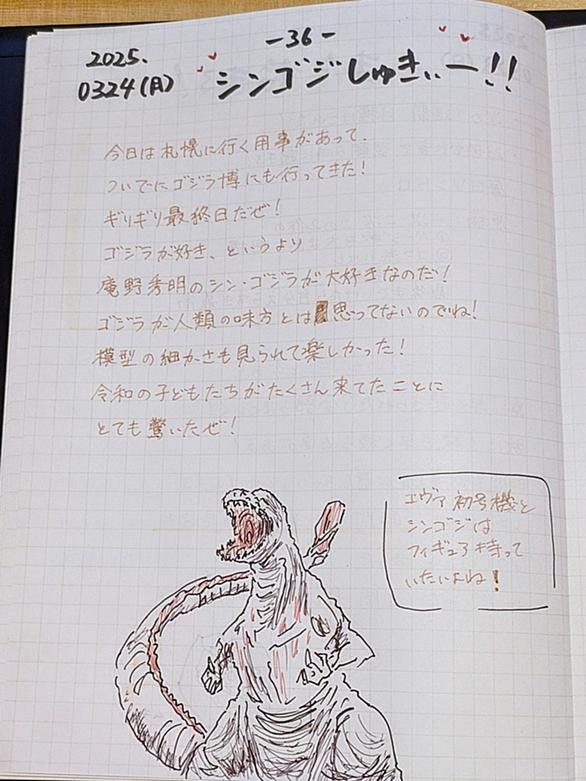 -36-
2025.
0324(月)
シンゴジしゅきぃー!!
今日は札幌に行く用事があって、
ついでにゴジラ博にも行ってきた!
ギリギリ最終日だぜ!
ゴジラが好き、というより
庵野秀明のシン・ゴジラが大好きなのだ!
ゴジラが人類の味方とは思ってないのでね!
模型の細かさも見られて楽しかった!
令和の子どもたちがたくさん来てたことに
とても驚いたぜ!
エヴァ初号機と
シンゴジは
フィギュア持って
いたいよね!